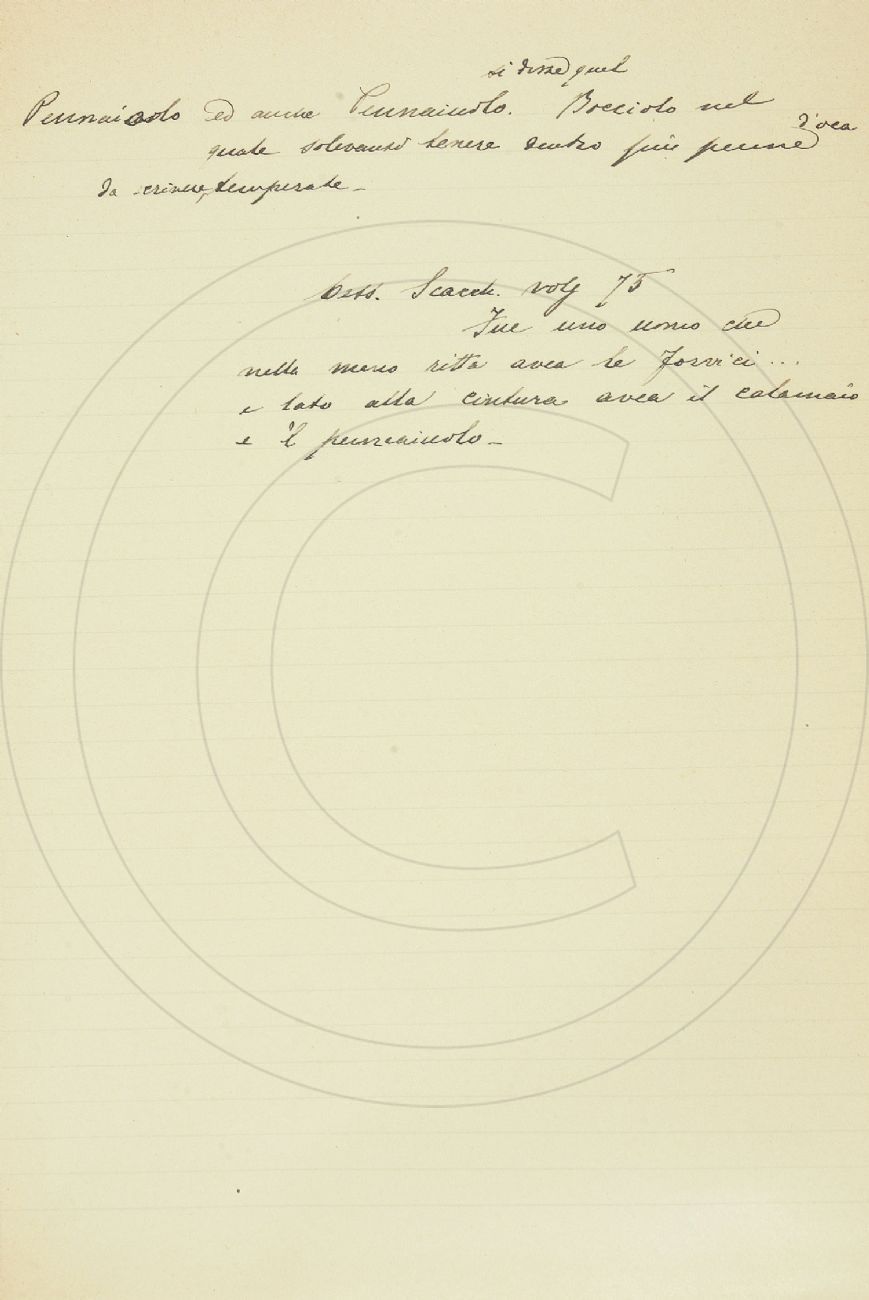 si disse quel
Pennaiolo ed anche Pennaiuolo. Bocciolo nel
d'oca
quale solevansi tenere dentro più penne
da scrivere, temperate –
Cess. Scacch. volg 75
Fue uno uomo che
nella mano ritta avea le forvici ...
e lato alla cintura avea il calamaio
e 'l pennaiuolo –